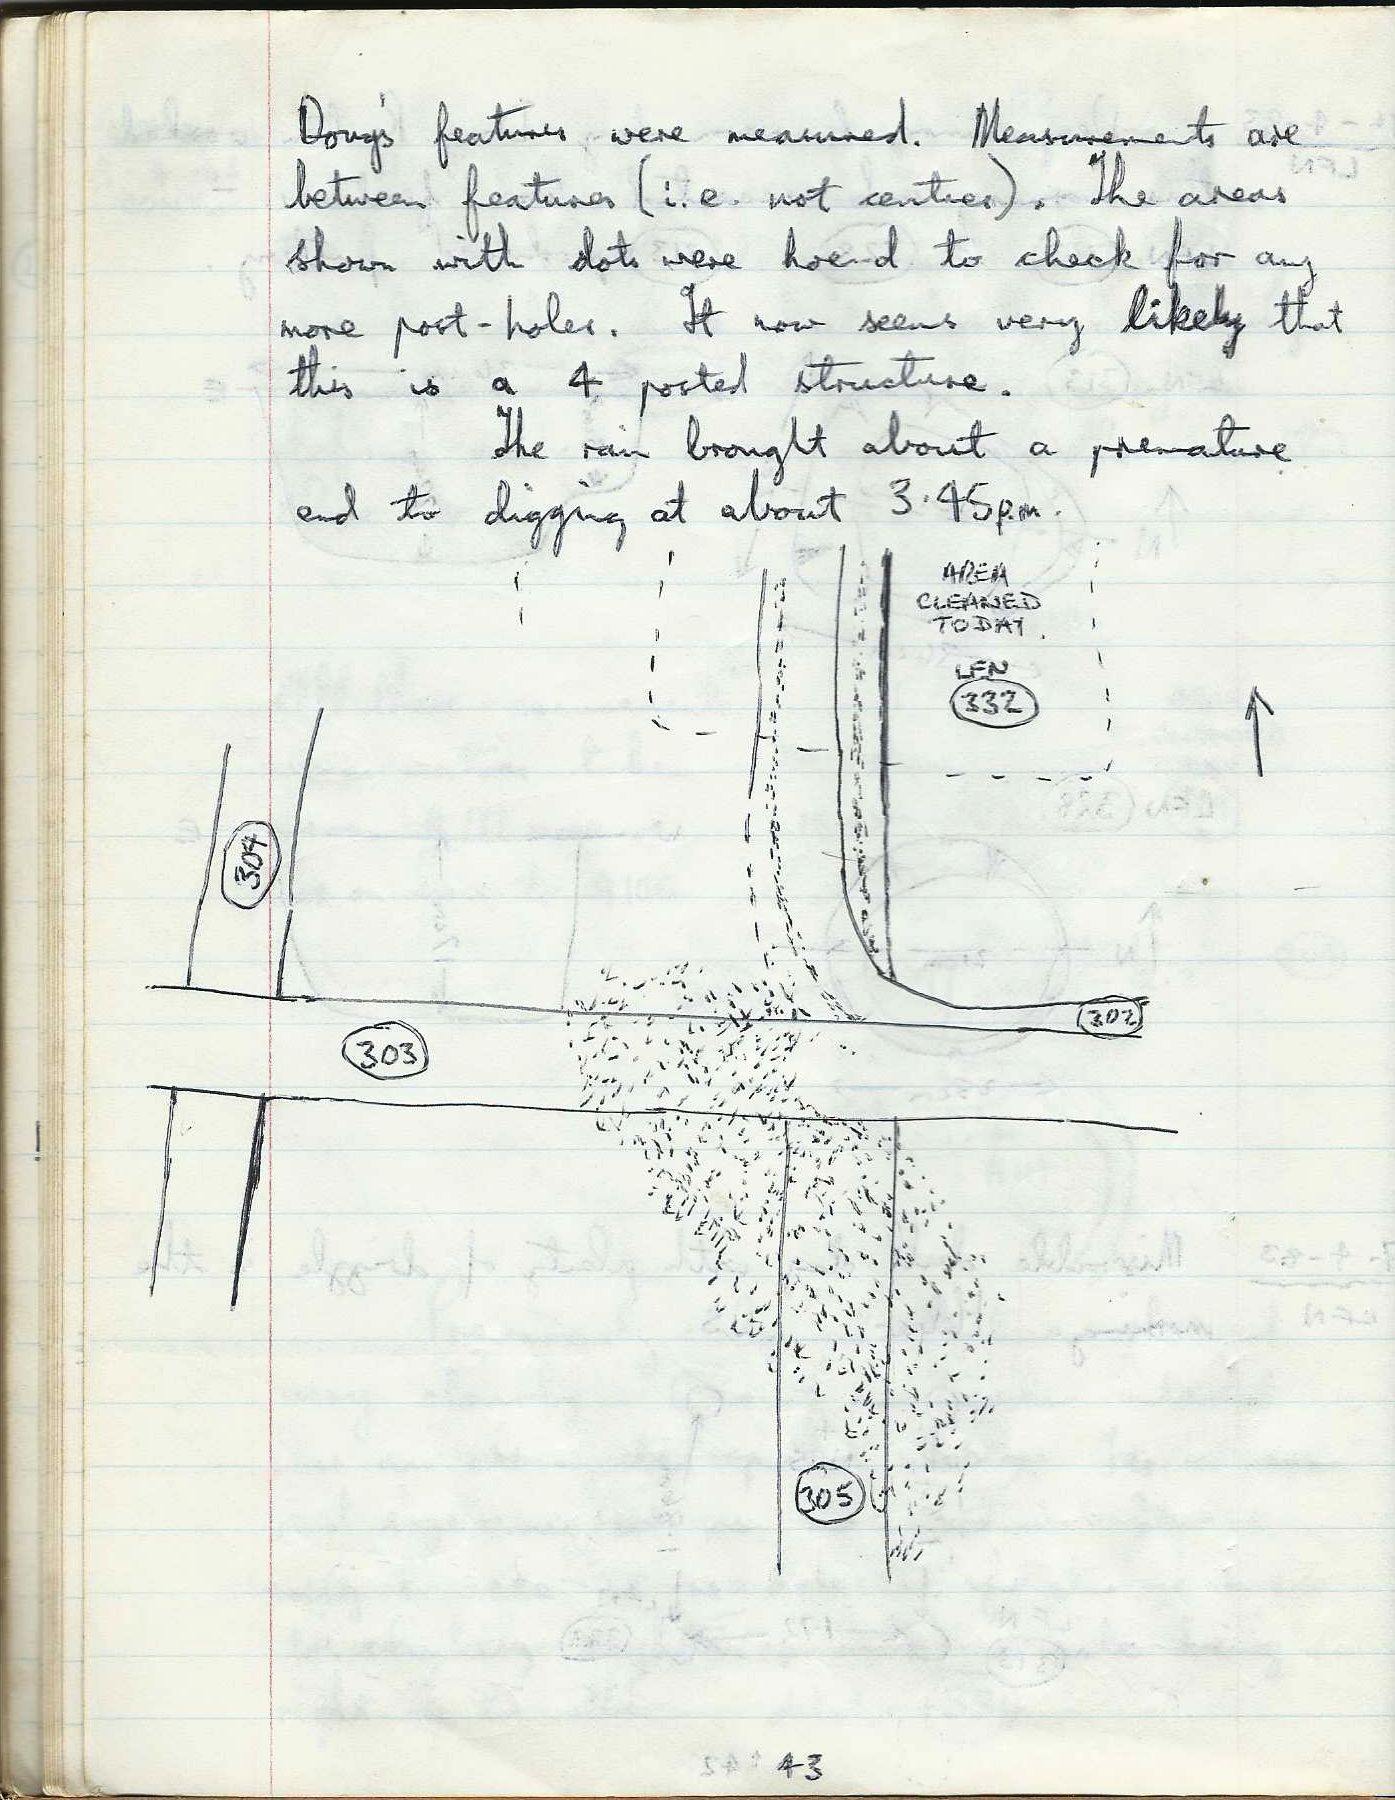 Doug's features were measured. Measurements are
between features (i.e. not centres). The areas
shown with dots were hoe-d to check for any
more post-holes. It now seems very likely that
this is a 4 posted structure.
The rain brought about a premature
end to digging at about 3.45p.m.
AREA
CLEANED
TODAY.
LFN
332
304
302
303
305
43